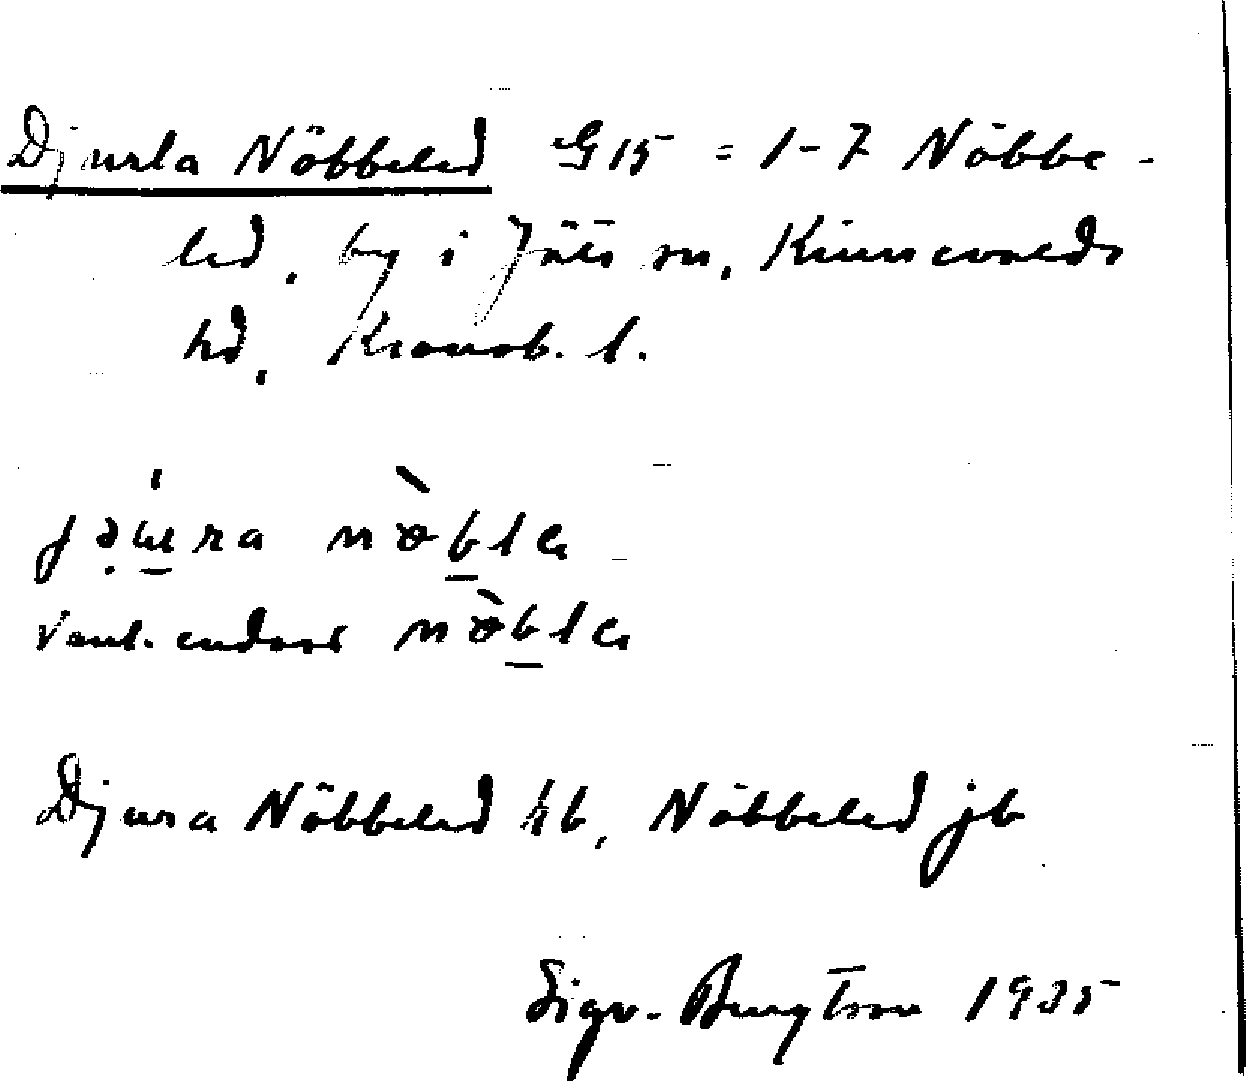 Djurla Nöbbeled G15 = 1-7 Nöbbe-
led, by i Jäts sn, Kinnevalds
hd, Kronob. l.
nöble
vanl. endast nöble
Djura Nöbbeled hb, Nöbbeled jb
Sigv. Bengtson 1935